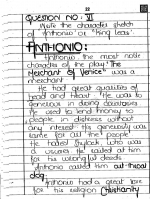 22
QUESTION NO: VI
Write the character sketch
of Anthonio or "King lear".
ANTHONIO:
Anthonio, the most noble
character of the play "The
Merchant of Venice" was a
merchant.
He had great qualities of
head and heart. He was
generous in doing
He used to lend money to
people in distress without
any interest. He generously was
same for all the people.
He hated Shylock, who was
a usurer. He hated at him
for his wrongful deeds.
Anthonio called him cut-throat
dog.
Anthonio had a great love
for his religion Christianity